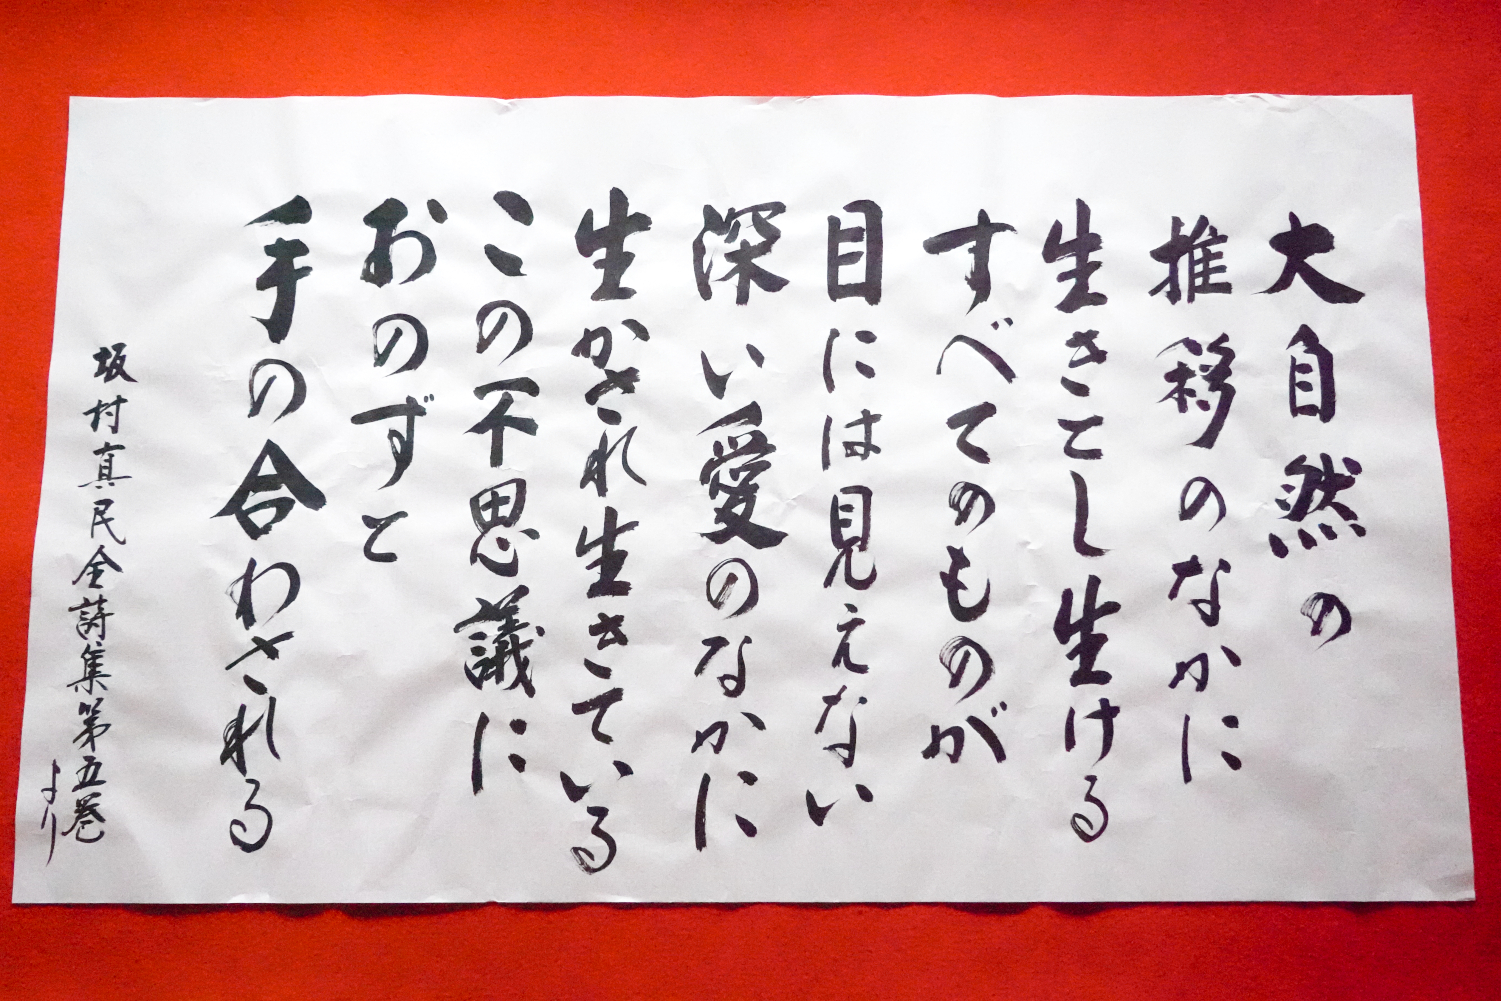 大自然の
推移のなかに
生きとし生ける
すべてのものが
目には見えない
深い愛のなかに
生かされ生きている
この不思議に
おのずと
手の合わされる
坂村真民全詩集第五巻
より